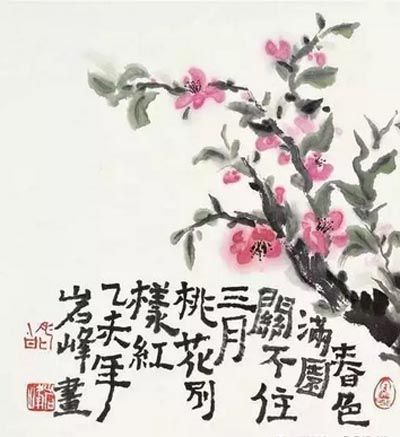 春色
滿園
關不住
三月
桃花別
樣紅
乙未年
岩峰畫